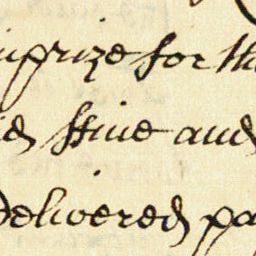 uprize for th
ffive and
Delivered pa